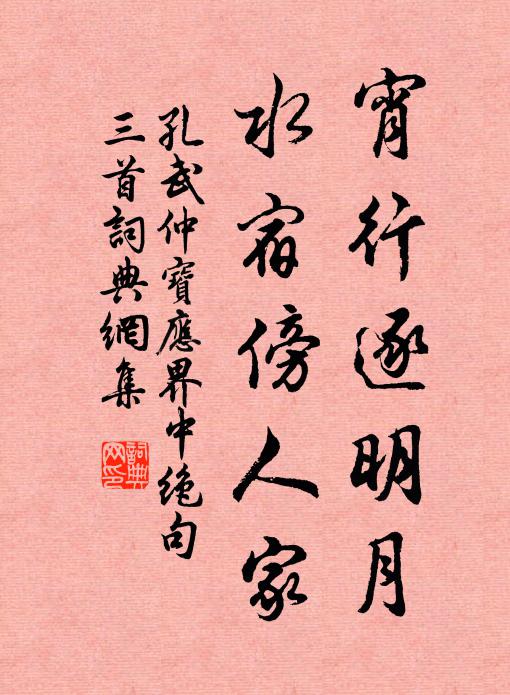 宵行逐明月
水宿傍人家
孔武仲寶應界中絶句
三首詞典網集
詞典
网印